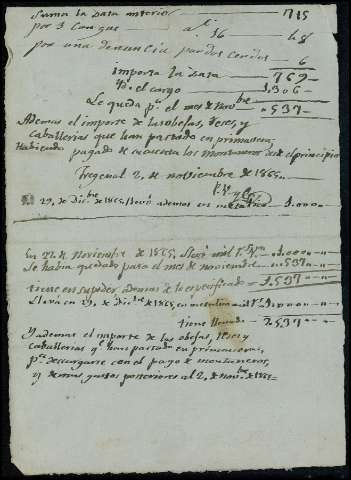 Suma la data anterior 715
por 3 Congas al 16 48
por una denuncia por dos cerdos 6
importa la data 769
Yd. el cargo 1.306
Le queda pa. el mes de Novbre 537
Ademas el importe de las obejas, Reses, y
Caballerias que han pastado en primavera,
Habiendo pagado de su cuenta los montaneros desde el principio
Fregenal 2, de noviembre de 1865
29, de Dicbre de 1865 llevó ademas en metalico 1.000
En 22 de Noviembre de 1865, llevó mil rs. vn. 1.000
Se habia quedado para el mes de noviembre 537
tiene en su poder ademas de lo especificado 1.537
Llevó en 29, de Dicbre de 1865, en metalico mil rs. 1.000
tiene llevado 2.537
Y ademas el importe de las obejas, Reses y
caballerias qe. han pastado en primavera,
pa. descargarse con el pago de montaneros,
y demas gastos posteriores al 2, de Novbre de 1865